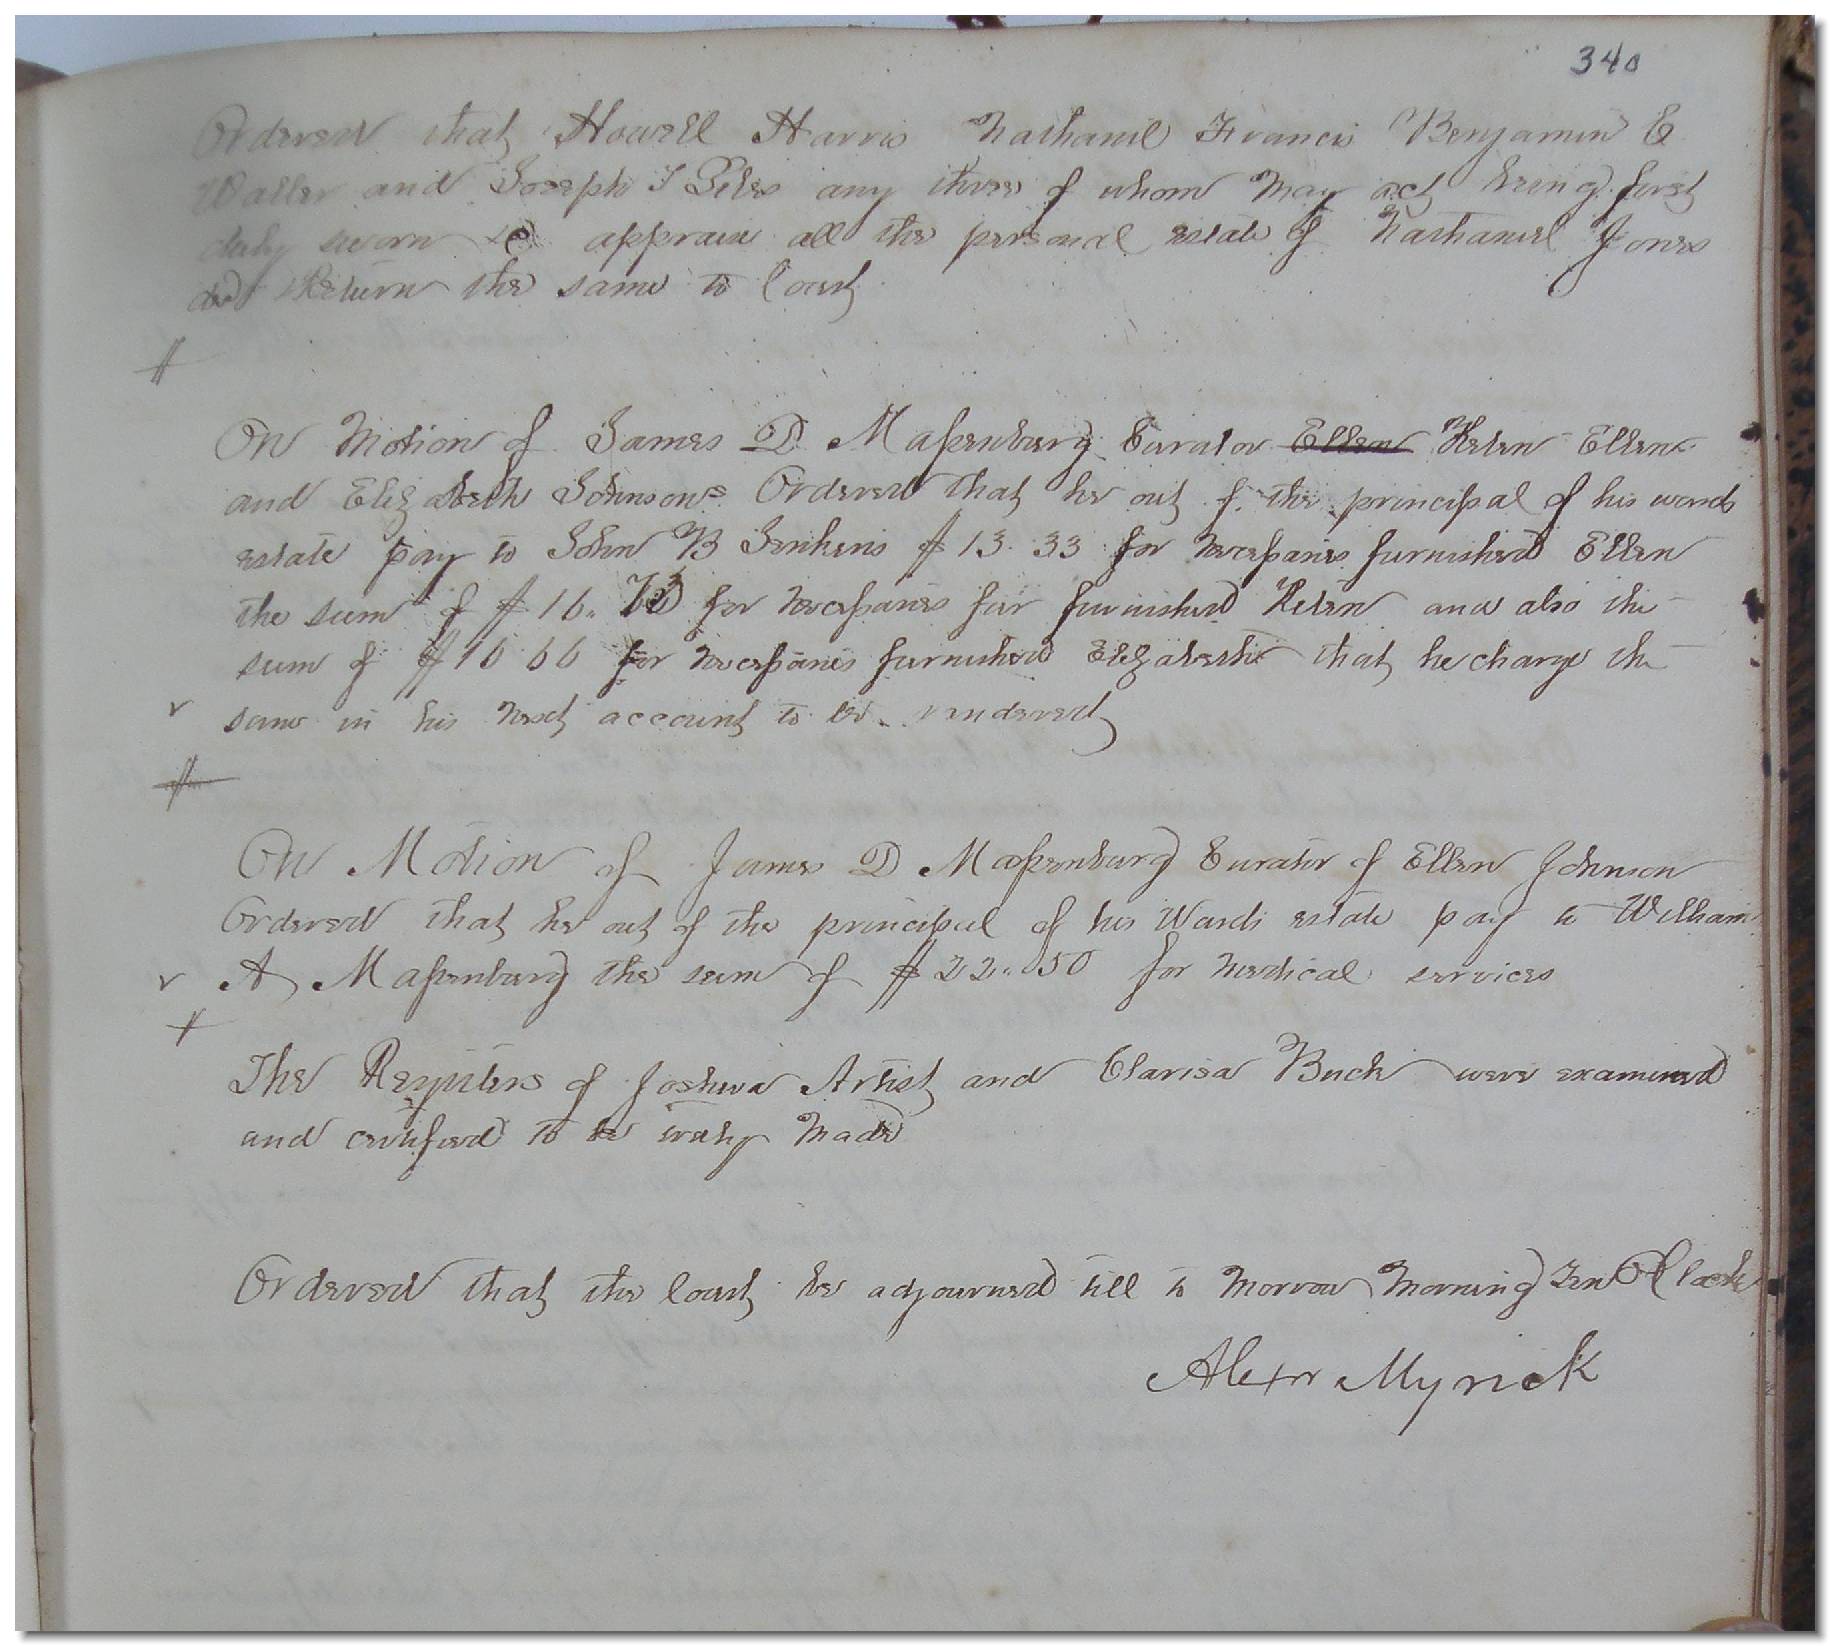 340
Ordered that Howell Harris Nathaniel Francis Benjamin E
Waller and Joseph T Piles any three of whom may act being first
duly sworn to appraise all the personal estate of Nathaniel Jones
decd & Return the same to Court
On Motion of James D Massenburg Curator Ellen Helen Ellen
and Elizabeth Johnsons Ordered that he out of the principal of his wards
estate pay to John B Jenkins $13.33 for necessaries furnished Ellen
the sum of $16. for necessaries fur furnished Helen and also the
sum of $16 66 for necessaries furnished Elizabeth that he charge the
same in his next account to be rendered
On Motion of James D Massenburg Curator of Ellen Johnson
Ordered that he out of the principal of his Wards estate pay to William
A Massenburg the sum of $22.50 for medical services
The Registers of Joshua Artist and Clarisa Buck were examined
and certified to be truly made
Ordered that the Court be adjourned till to morrow morning ten OClock
Alexr Myrick